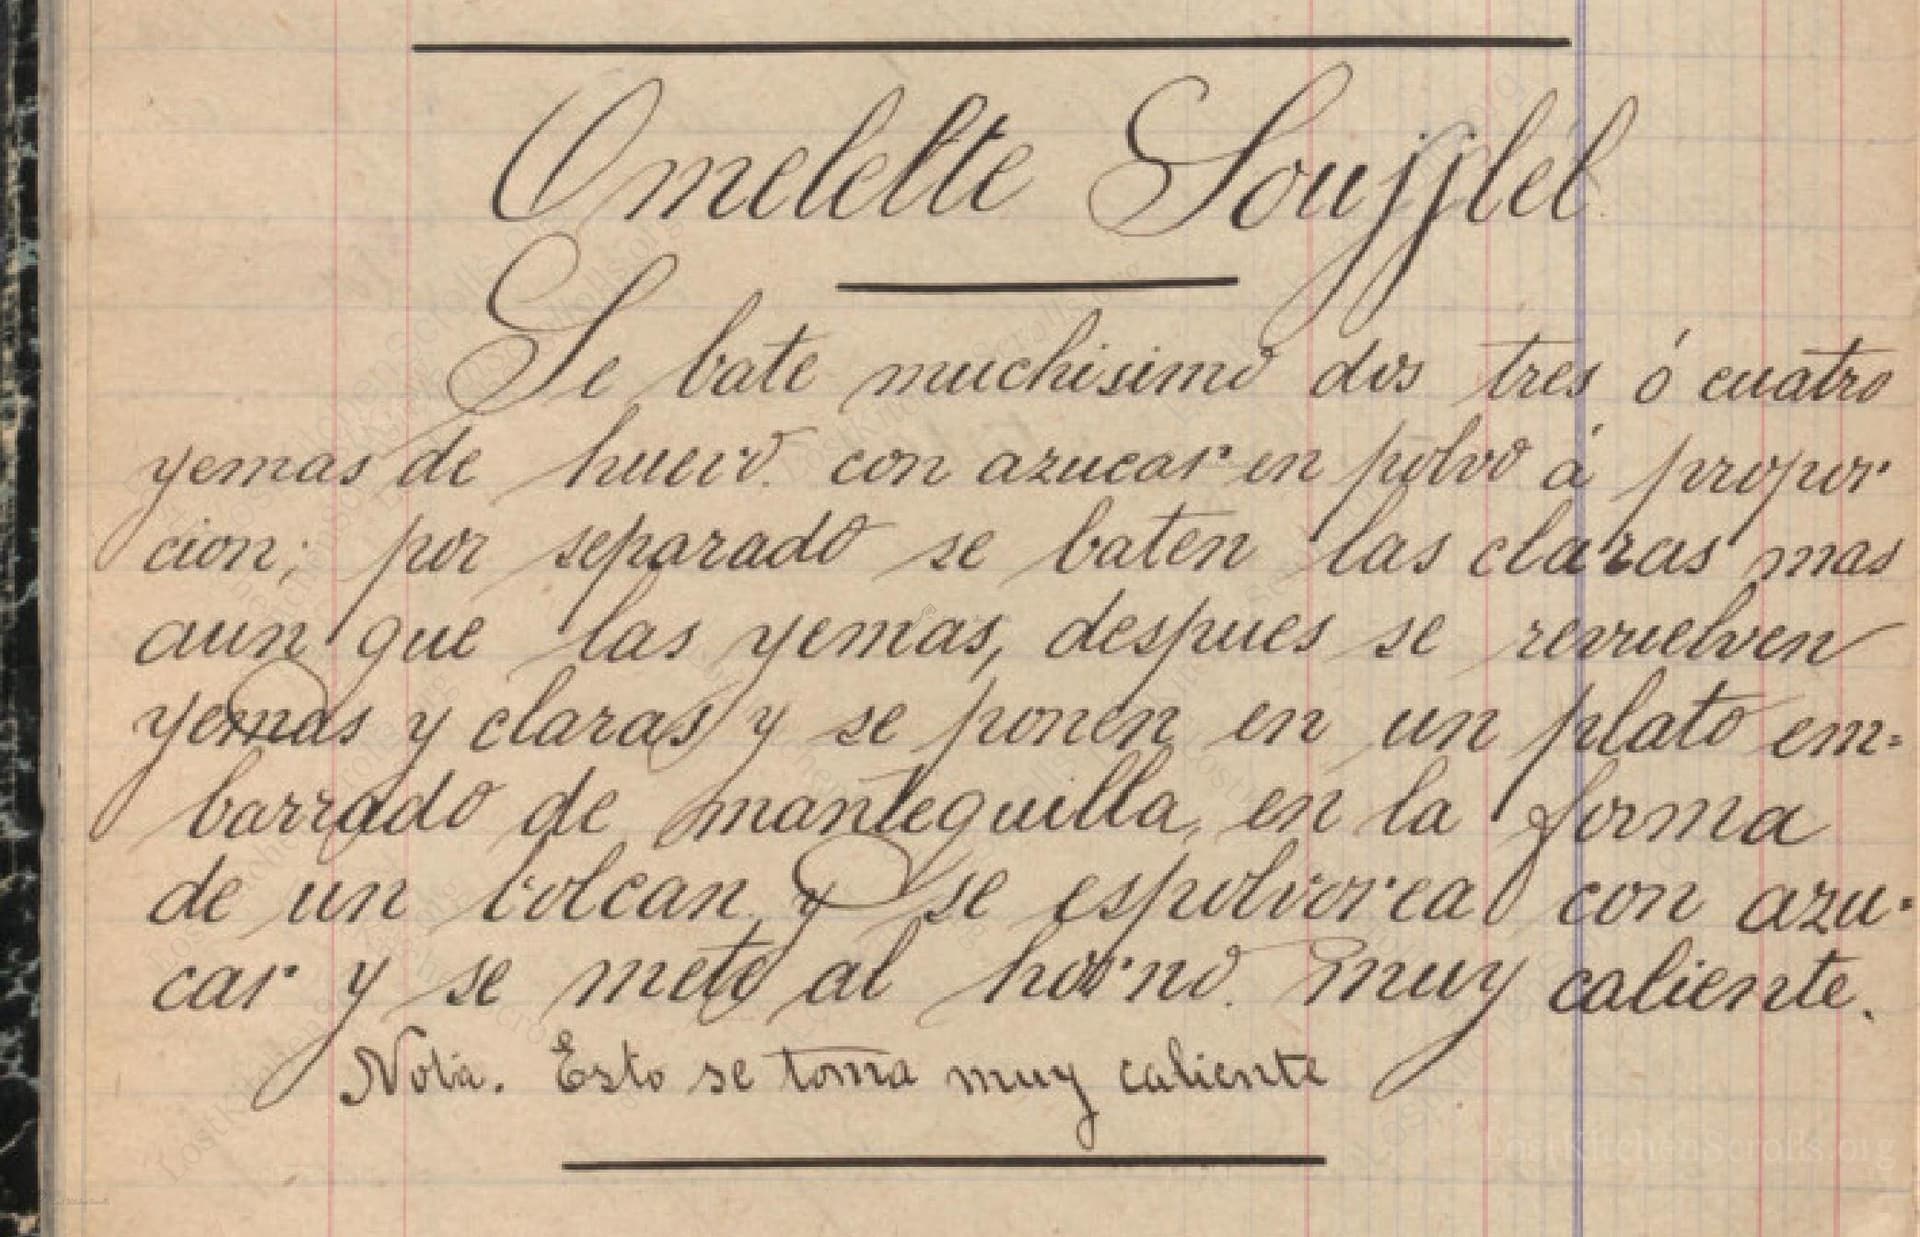 Omelette Soufflel
Se bate muchisimo dos tres ó cuatro
yemas de huevo. con azucar en polvo á propor
cion; por separado se baten las claras mas
aun que las yemas, despues se revuelven
yemas y claras y se ponen en un plato em=
barrado de mantequilla, en la forma
de un volcan y se espolvorea con azu-
car y se mete al horno. muy caliente.
Nota. Esto se toma muy caliente
LostKitchenScrolls.org